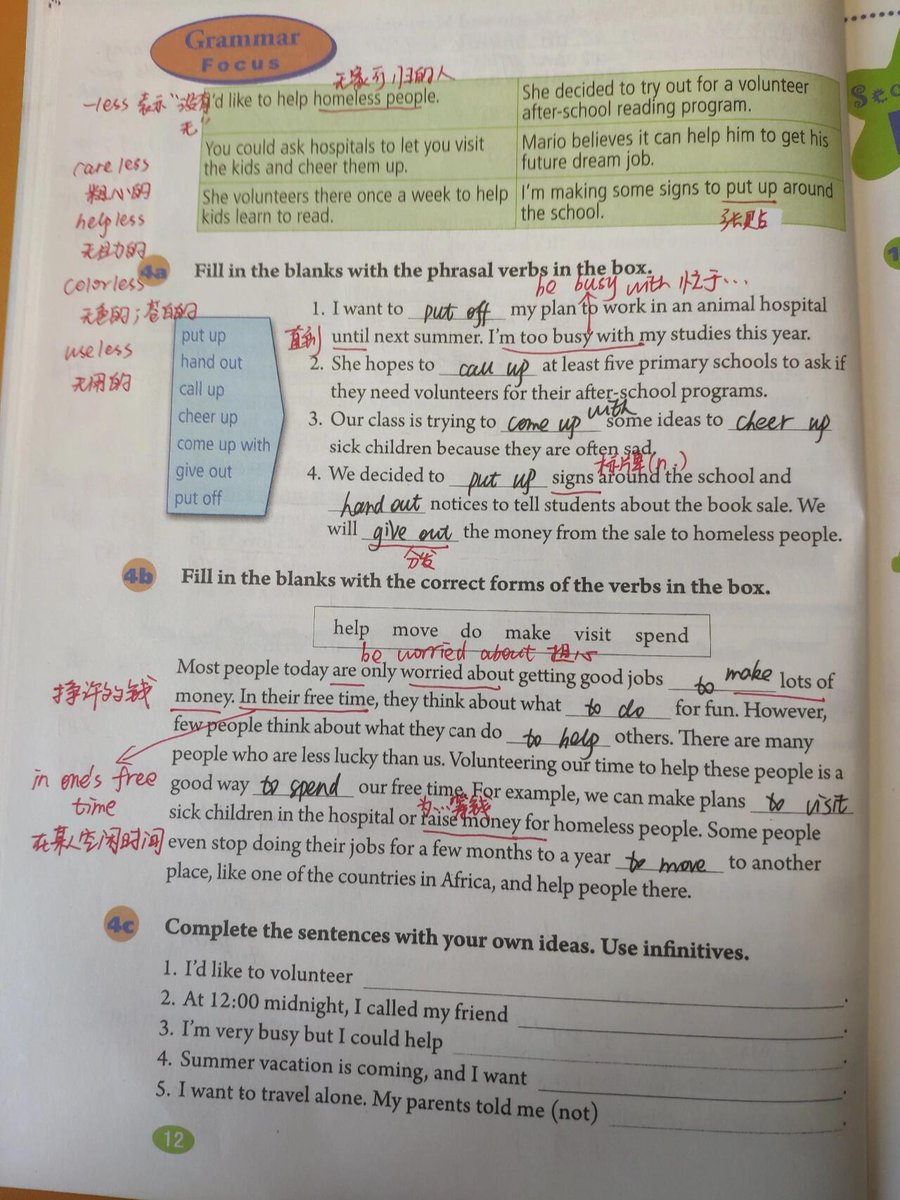 Grammar
Focus
无家可归的人
-less 表示"没有
无"
I'd like to help homeless people.
She decided to try out for a volunteer
after-school reading program.
You could ask hospitals to let you visit
the kids and cheer them up.
Mario believes it can help him to get his
future dream job.
She volunteers there once a week to help
kids learn to read.
I'm making some signs to put up around
the school.
张贴
careless
粗心的
helpless
无助的
colorless
无色的；苍白的
useless
无用的
4a Fill in the blanks with the phrasal verbs in the box.
be busy with 忙于…
put up
hand out
call up
cheer up
come up with
give out
put off
1. I want to put off my plan to work in an animal hospital
直到
until next summer. I'm too busy with my studies this year.
2. She hopes to call up at least five primary schools to ask if
they need volunteers for their after-school programs.
3. Our class is trying to come up with some ideas to cheer up
sick children because they are often sad.
标牌(n.)
4. We decided to put up signs around the school and
hand out notices to tell students about the book sale. We
will give out the money from the sale to homeless people.
分发
4b Fill in the blanks with the correct forms of the verbs in the box.
help move do make visit spend
be worried about 担心
Most people today are only worried about getting good jobs to make lots of
挣许多的钱
money. In their free time, they think about what to do for fun. However,
few people think about what they can do to help others. There are many
people who are less lucky than us. Volunteering our time to help these people is a
in one's free
time
在某人空闲时间
good way to spend our free time. For example, we can make plans to visit
为…筹钱
sick children in the hospital or raise money for homeless people. Some people
even stop doing their jobs for a few months to a year to move to another
place, like one of the countries in Africa, and help people there.
4c Complete the sentences with your own ideas. Use infinitives.
1. I'd like to volunteer .
2. At 12:00 midnight, I called my friend .
3. I'm very busy but I could help .
4. Summer vacation is coming, and I want .
5. I want to travel alone. My parents told me (not) .
12